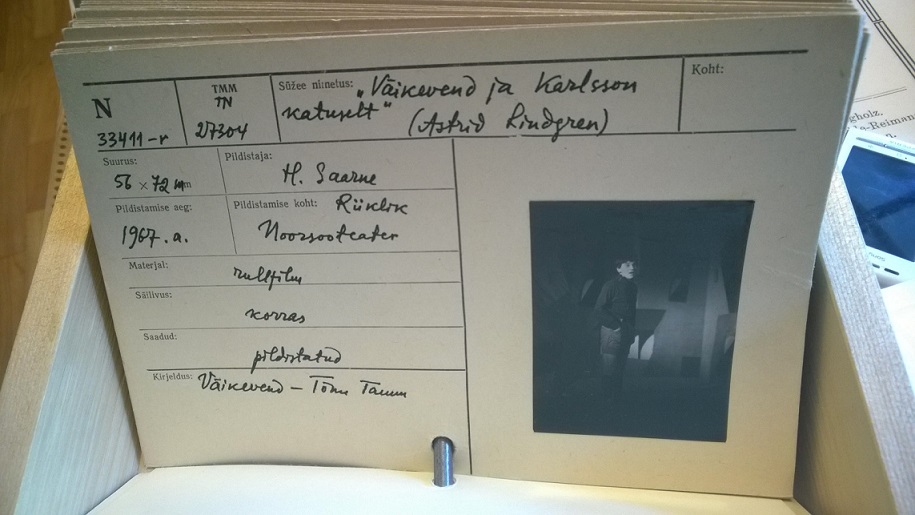 N
33411-r
TMM
TN
27304
Süžee nimetus: „Väikevend ja Karlsson
katuselt" (Astrid Lindgren)
Koht:
Suurus:
56 × 72 mm
Pildistaja:
H. Saarne
Pildistamise aeg:
1967. a.
Pildistamise koht: Riiklik
Noorsooteater
Materjal:
rullfilm
Säilivus:
korras
Saadud:
pildistatud
Kirjeldus: Väikevend – Tõnu Tamm
gholz,
a-Reiman